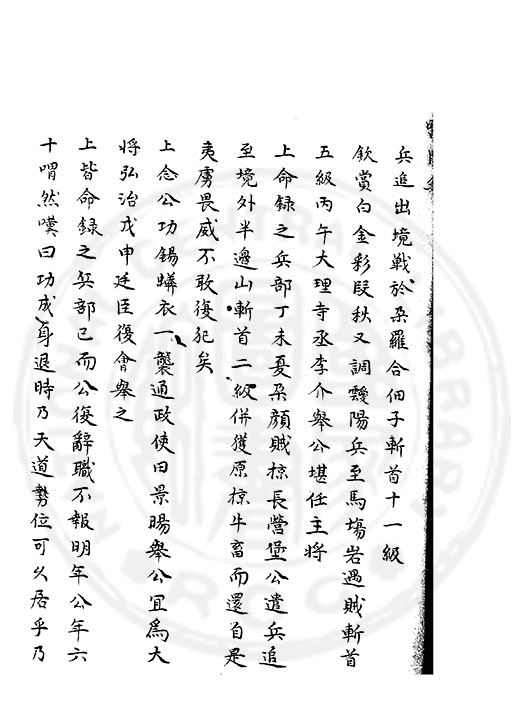 兵追出境戰於朵羅合佃子斬首十一級
欽賞白金彩段秋又調靉陽兵至馬塲岩遇賊斬首
五級丙午大理寺丞李介舉公堪任主將
上命錄之兵部丁未夏朵顏賊掠長營堡公遣兵追
至境外半邊山斬首二級併獲原掠牛畜而還自是
夷虜畏威不敢復犯矣
上念公功錫蟒衣一襲通政使田景暘舉公宜爲大
將弘治戊申廷臣復會舉之
上皆命錄之兵部已而公復辭職不報明年公年六
十喟然嘆曰功成身退時乃天道勢位可久居乎乃